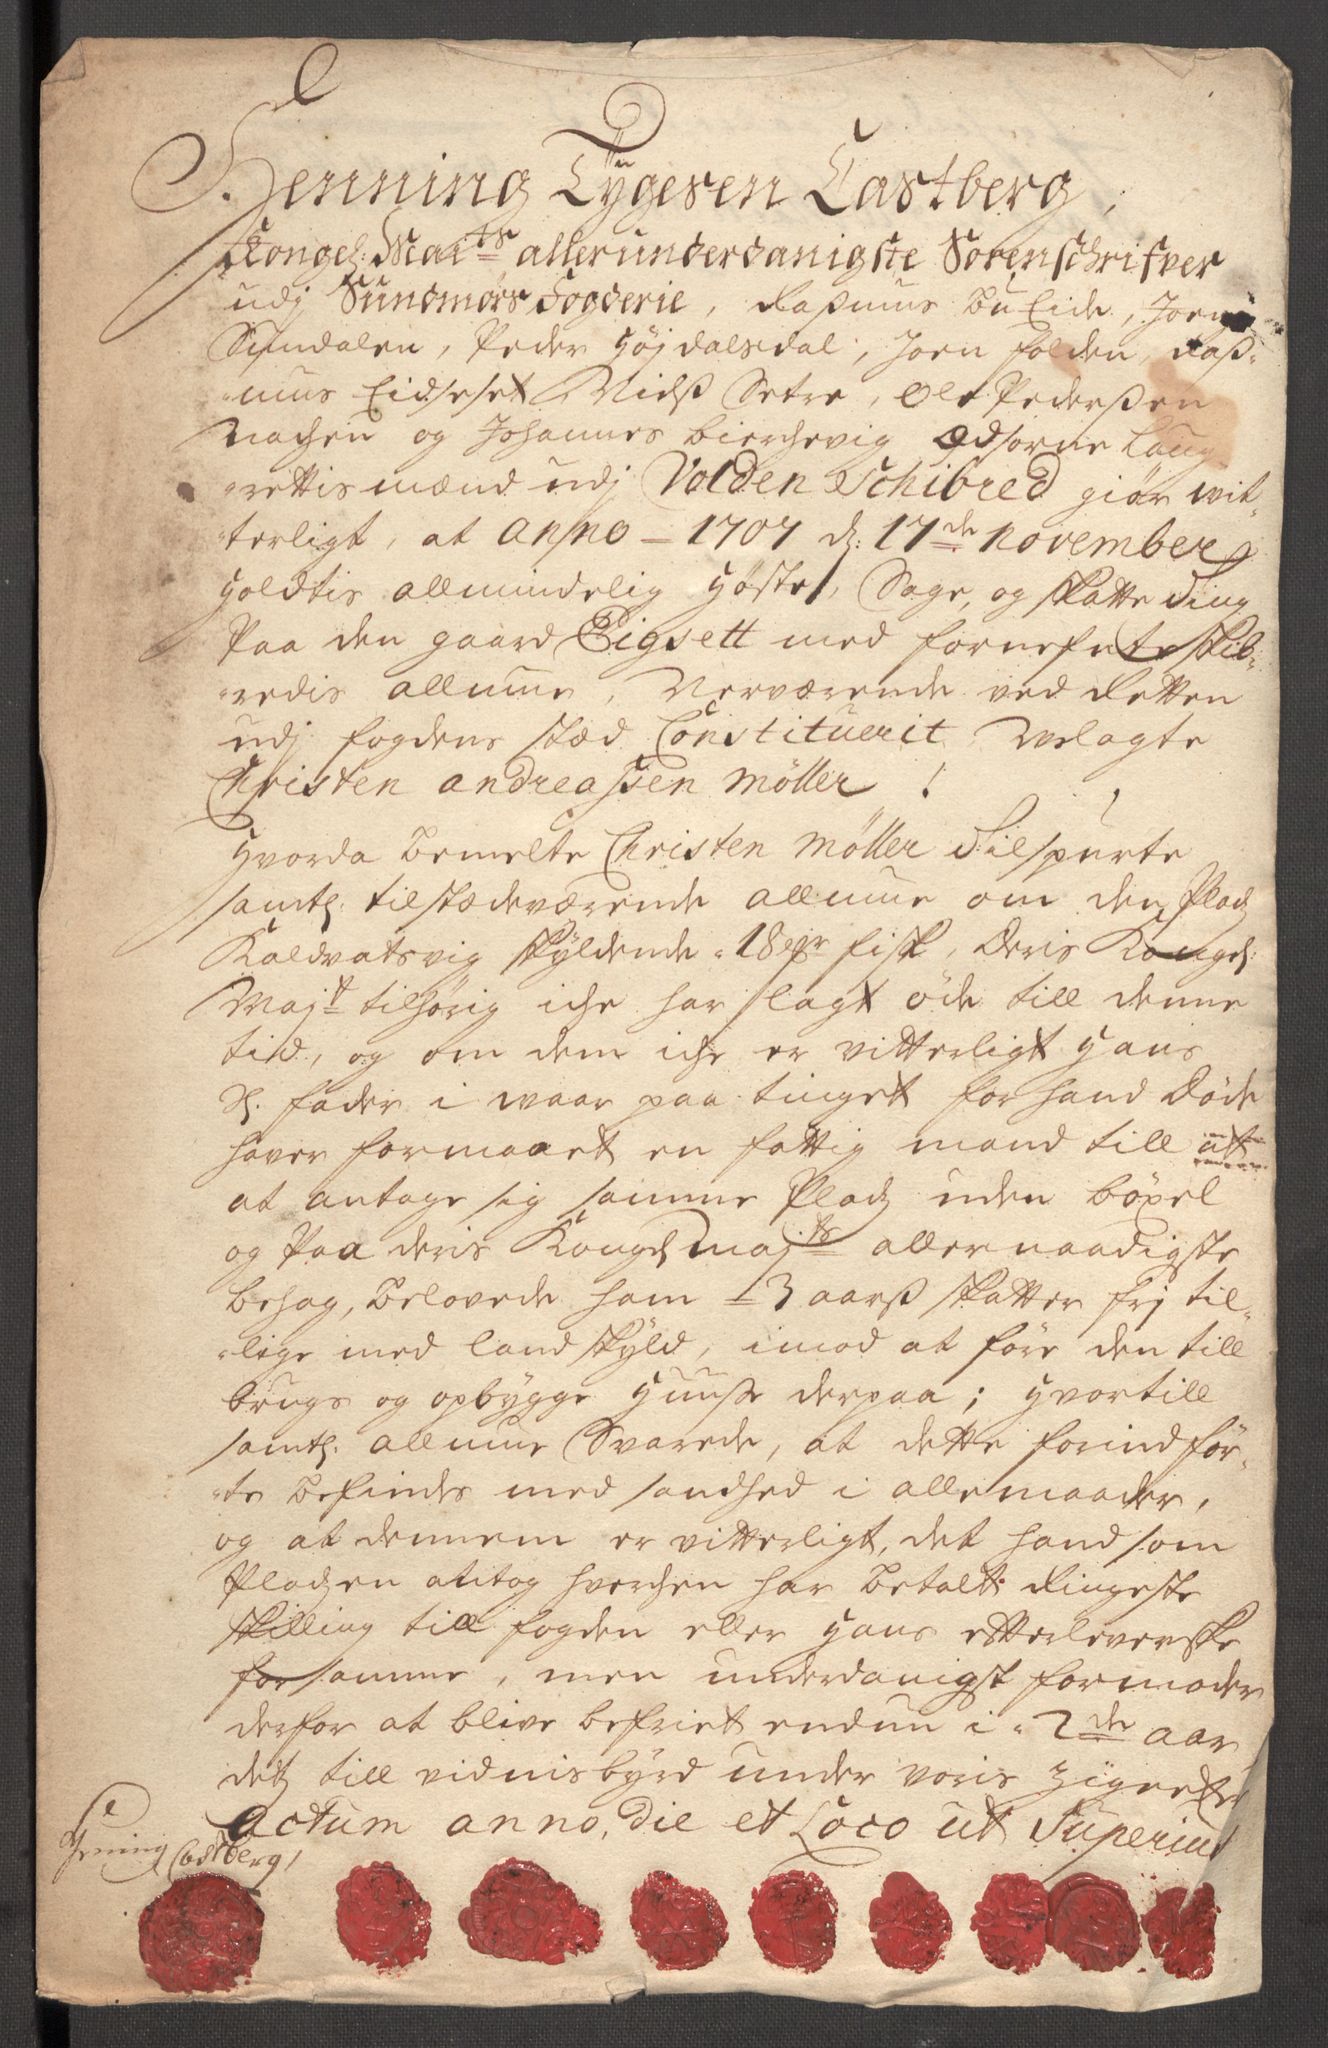 Henning Tÿgesen Castberg,
Kongel: Mai:ts allerunderdanigste Sorenschrifver
udj Sundmørs Fogderie, Rasmus Bueide, Joen
Sundalen, Peder Højdalsdal, Joen Folden, Raß-
-mus Eidseset Nielß Setre, Ole Pederßen
Nachen og Johannes Bierchevig Edsorne Laug-
-rettismænd udj Volden Schibred giør wit-
-terligt, at Anno - 1707 d: 17de November
holdtis allmindelig Høste, Sage, og Skatte Ting
Paa den gaard Eigsett med fornefnte Skib-
-redis allmue, Nerværende ved Retten
udj fogdens stæd Constituerit Welagte
Christen Andreassen Møller !
Hvorda bemelte Christen Møller Tilspurte
samtl: tilstædeværende allmue om den Plads
Kaldvatsvig skÿldende 18 mr fisk, Deris Kongel:
Majt: tilhørig iche har lagt øde till denne
tid, og om dem iche er vitterligt Hans
Sl. fader i waar paa tinget for hand Døde
haver formaaet en fattig mand till at
at antage sig samme Plads uden bøxel
og Paa deris Kongl Majts allernaadigste
behag, belovede ham - 3 aarß skatter frj til-
-lige med landskÿld, imod at føre den till
brugs og opbÿgge Huuse derpaa; Hvortill
samtl: allmue Svarede, at dette forindfør-
-te befindes med sandhed i allemaader,
og at dennem er vitterligt, det hand som
Pladsen antog hverchen har betalt Ringeste
skilling till fogden eller Hans efterleverske
for samme, men underdanigst formoder
derfor at blive befriet endnu i 2de aar
dets till vidnisbÿrd under voris Zigneter
Actum anno, die et Loco ut Superius
Henning Castberg